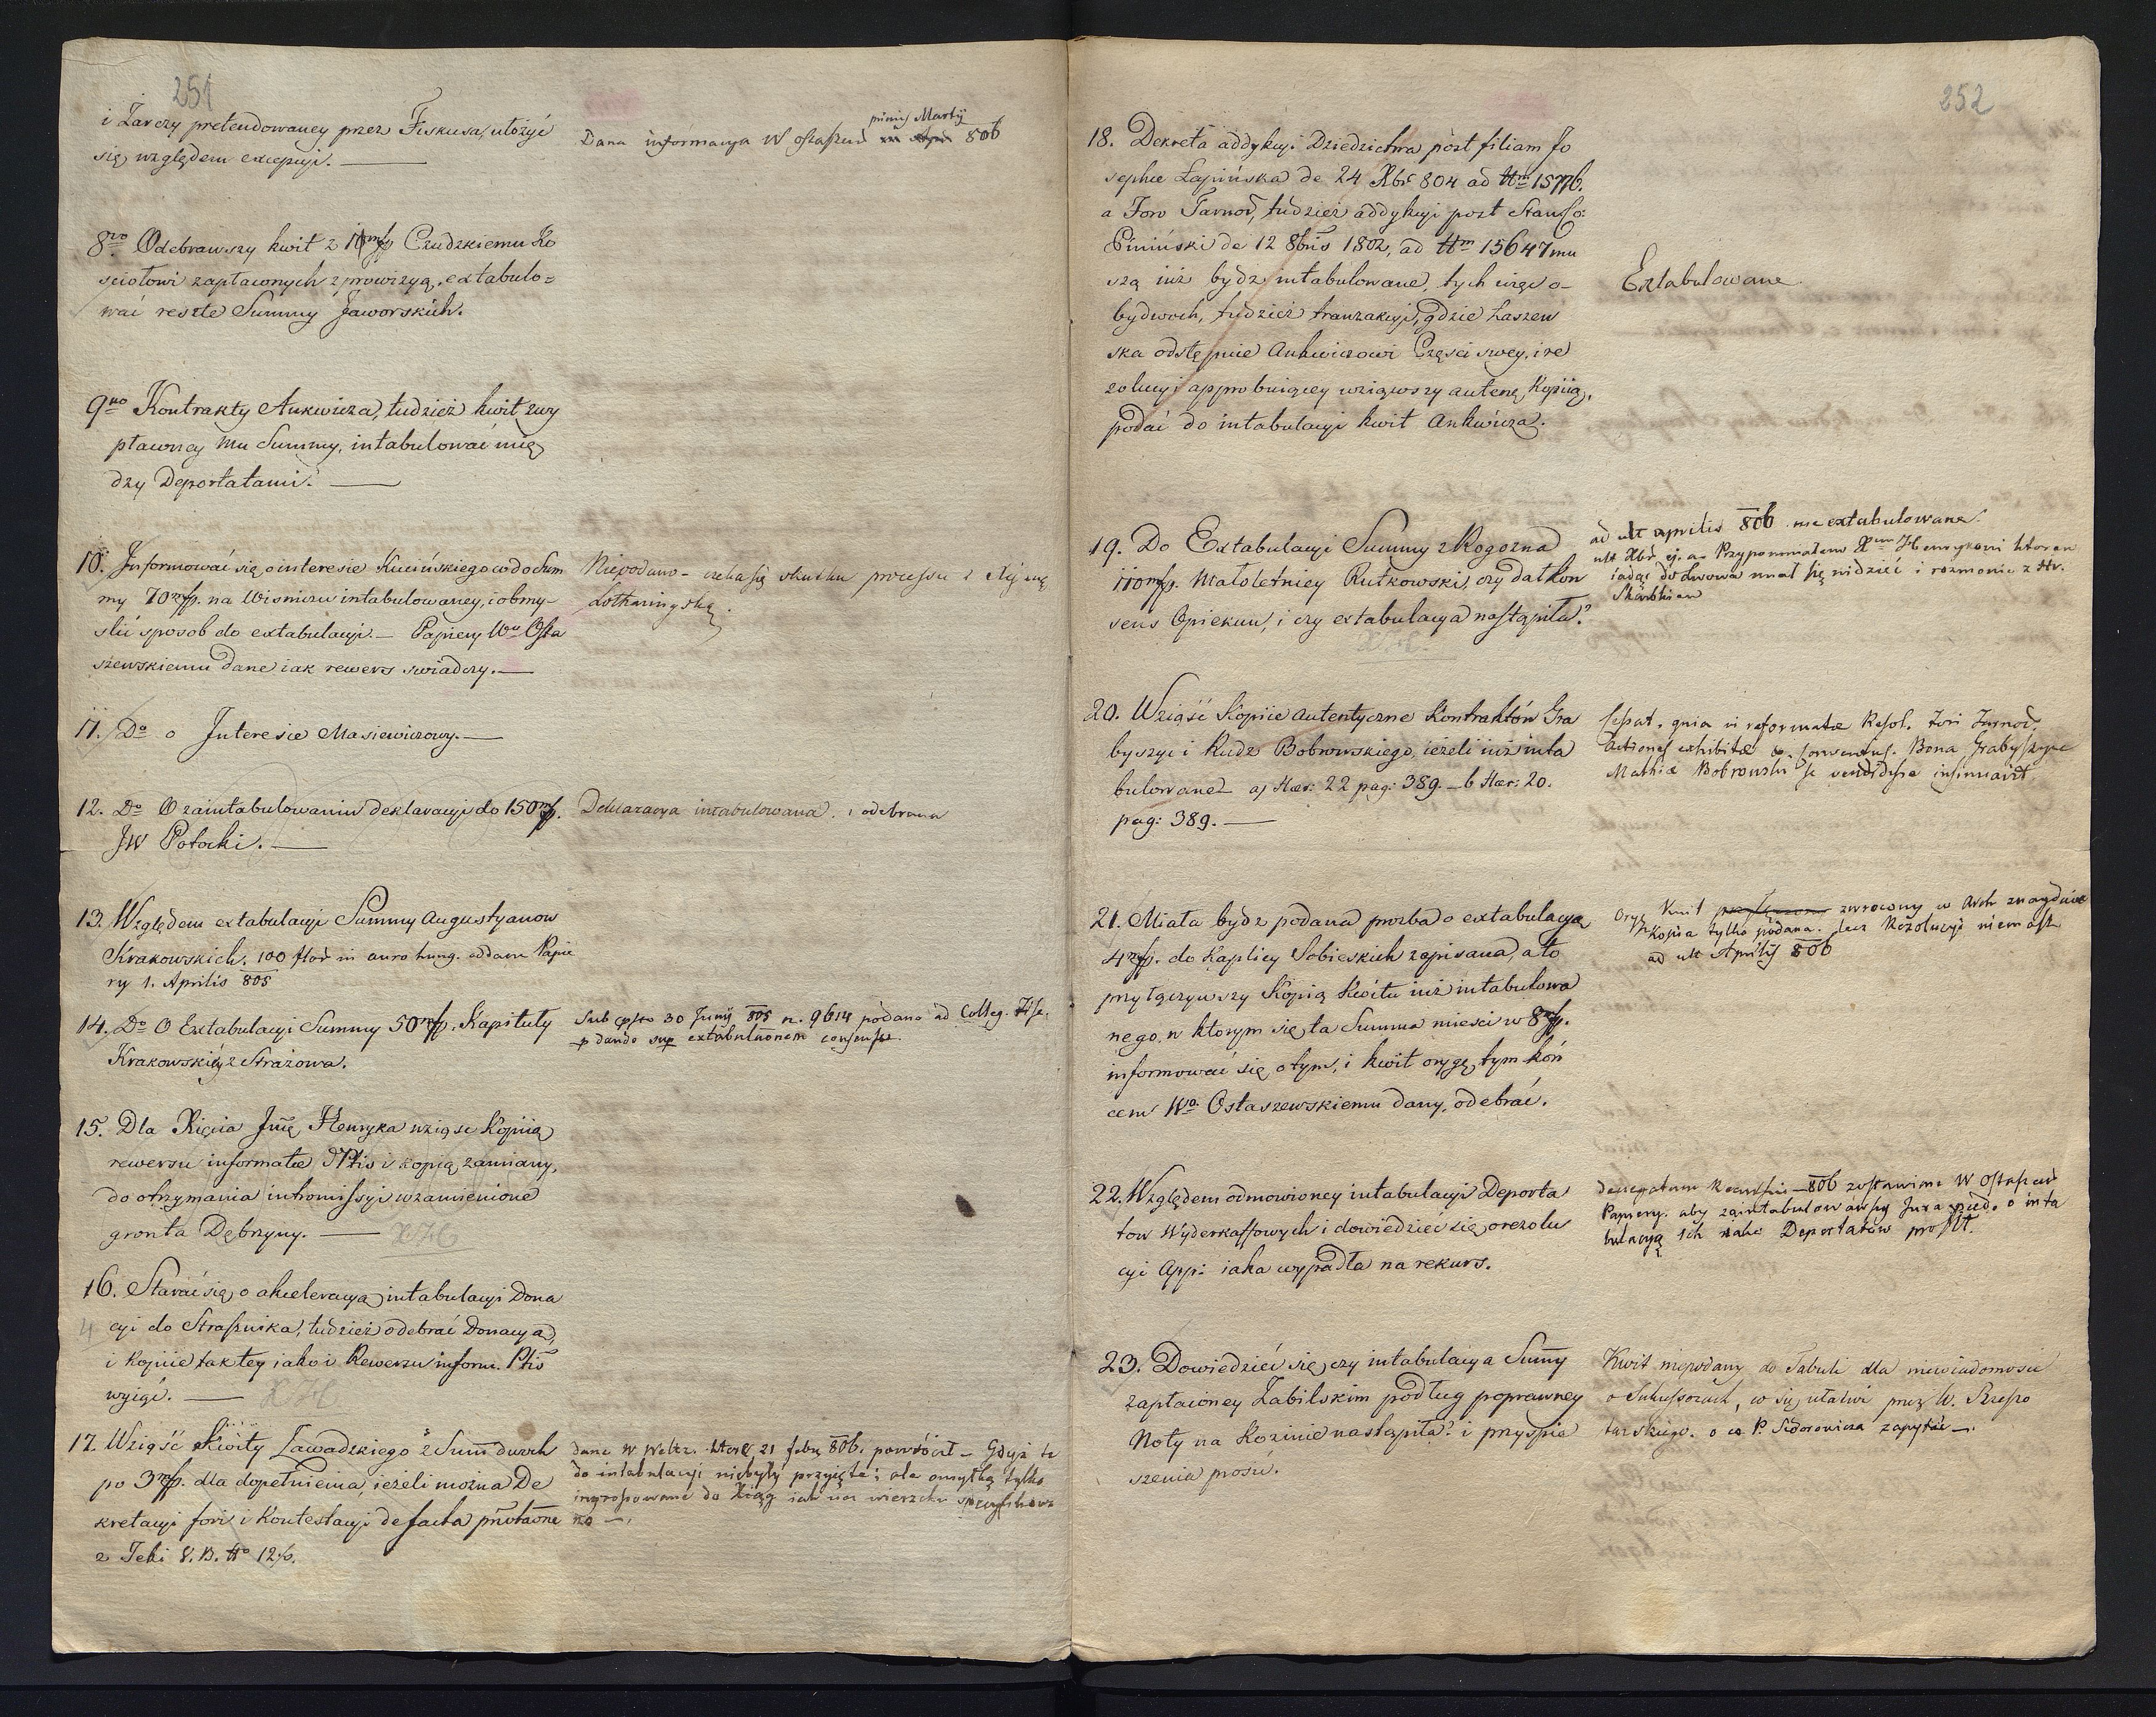 251
i Zarczy pretendowaney przez Fiskusa, ułożyć
się względem excepcyi. —
Dana informacya W Ostaszew 806
primis Martij
8vo Odebrawszy kwit z Czudzkiemu Ko
sciołowi zapłaconych z prowizyą, extabulo=
wać resztę Summy Jaworskich.
9no Kontrakty Ankwicza, tudzież kwit zwy
płaconey mu Summy, intabulować mię
dzy Deportatami. —
10. Informować się o interesie Kucińskiego codo Sum
my 70 na Wisniczu intabulowaney, i obmy-
slić sposob do extabulacyi. — Papiery Wu Osta
szewskiemu dane iak rewers swiadczy. —
Niepodano - czeka się skutku processu z Xięzną
Lotharingską.
11. Do o Interesie Masiewiczowy. —
12. Do O zaintabulowaniu deklaracyi do 150
JW Potocki. —
Deklaracya intabulowana. i odebrana
13. Względem extabulacyi Summy Augustyanow
Krakowskich. 100 flor in auro hung. oddane Papie
ry 1. Aprilis 805
14. Do O Extabulacyi Summy 50 Kapituły
Krakowskiey z Strażowa.
Sub 30 Junij 805 n. 9614 podano ad Colleg. Fisc.
p dando sup extabulationem consensu.
15. Dla Xięcia Jmę Henryka wziąść Kopiią
rewersu informatæ Ptis i kopią zamiany,
do otrzymania intromissyi wzamienione
gronta Dębrzyny. — XH
16. Starać się o akceleracyą intabulacyi Dona
cyi do Strasznika, tudzież odebrać Donacyą,
i kopiie tak tey iako i Rewersu inform. Ptis
wyiąć. — XH
17. Wziąść Kwity Zawadzkiego z Summ dwoch
po 3 dla dopełnienia, ieżeli można De
kretacyi fori i Kontestacyi de facta
z Teki V. B. No 12.
dane W Weltz. które 21 febr 806. powrócił — Gdyż te
do intabulacyi niebyły przyięte; ale omyłką tylko
ingrossowane do Xiąg iak na wierzchu
no —.
252
18. Dekreta addykcyi Dziedzictwa post filiam Jo
sephæ Łapińska de 24 Xbr 804 ad Nrm 15776.
a Foro Tarnov, tudzież addykcyi post Stanisło:
Piniński de 12 8bris 1802, ad Nrm 15647 mu
szą iuż bydź intabulowane, tych więc o-
bydwoch, tudzież tranzakcyi, gdzie Łaszew
ska odstępuie Ankwiczowi Częsci swey, i re
zolucyi approbuiącey wziąwszy autent. Kopiią,
podać do intabulacyi kwit Ankwicza.
Extabulowane.
19. Do Extabulacyi Summy z Rogożna
110 Małoletniey Rutkowski, czy dał kon
sens Opiekun, i czy extabulacya nastąpiła?
ad ult aprilis 806 nie extabulowana.
ult Xbr ej. a. Przypomniałem Xiu Henrykowi ktoren
iadąc do Lwowa miał się widzieć i rozmowić z Hr.
Skarbkiem
20. Wziąść Kopiie autentyczne Kontraktów Gra
byszyc i Rudz Bobrowskiego, ieżeli iuż inta
bulowane a) Hær: 22 pag: 389. — b Hær: 20.
pag: 389. —
Separ. quia in reformatæ Resol. Fori Tarnov
Actiones exhibitæ Bona Grabyszyce
Mathiæ Bobrowski se vendidisse insinuavit
21. Miała bydź podana prozba o extabulacyą
4 do Kaplicy Sobieskich zapisana, a to
przyłączywszy Kopią Kwitu iuż intabulowa
nego, w ktorym się ta Summa miesci w 8
informować się o tym, i kwit oryg. tym koń
cem Wo Ostaszewskiemu dany, odebrać.
Oryg Kwit zwrocony w Arch znayduie
Kopia tylko podana. lecz Rezolucyi niemasz
ad ult Aprilij 806
22. Względem odmowioney intabulacyi Deporta
tow Wyderkaffowych i dowiedzieć się o rezolu
cyi App: iaka wypadła na rekurs.
denegatum 806 zostawione W Ostaszew
Papiery. aby zaintabulowawszy Jura o inta
bulacyą ich iako Deportatów prosił.
23. Dowiedzieć się, czy intabulacya Summy
zapłaconey Zabilskim podług poprawney
Noty na Rozinie nastąpiła? i przyspie
szenia prosić.
Kwit niepodany do Tabuli dla niewiadomości
o Sukcessorach, co się ułatwi przez W. Rzepo
tarskiego. o co P. Sidorowicza zapytać —.